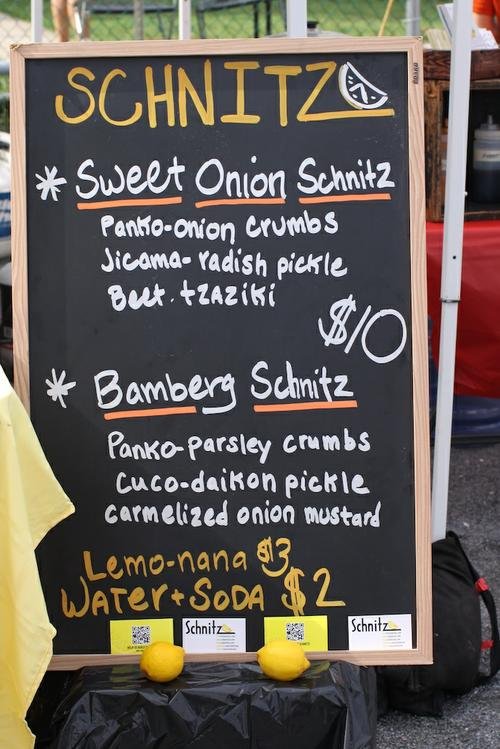 SCHNITZ
* Sweet Onion Schnitz
Panko-onion crumbs
Jicama-radish pickle
Beet. tzaziki
$10
* Bamberg Schnitz
Panko-parsley crumbs
Cuco-daikon pickle
carmelized onion mustard
Lemo-nana $3
WATer+SODA $2
Schnitz
Schnitz